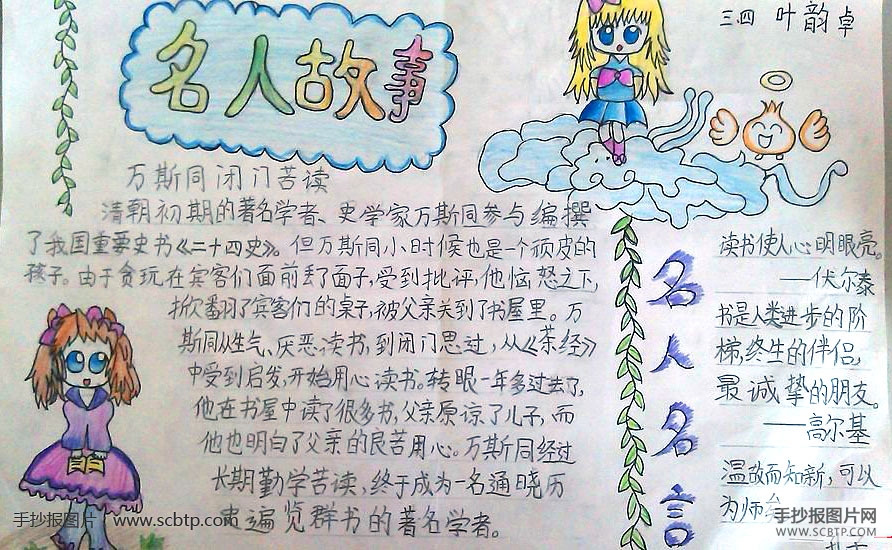 名人故事
三四 叶韵卓
万斯同闭门苦读
清朝初期的著名学者、史学家万斯同参与编撰
了我国重要史书《二十四史》。但万斯同小时候也是一个顽皮的
孩子。由于贪玩在宾客们面前丢了面子,受到批评,他恼怒之下,
掀翻了宾客们的桌子,被父亲关到了书屋里。万
斯同从生气、厌恶读书,到闭门思过,从《茶经》
中受到启发,开始用心读书。转眼一年多过去了,
他在书屋中读了很多书,父亲原谅了儿子,而
他也明白了父亲的良苦用心。万斯同经过
长期勤学苦读,终于成为一名通晓历
史遍览群书的著名学者。
名人名言
读书使人心明眼亮。
——伏尔泰
书是人类进步的阶
梯,终生的伴侣,
最诚挚的朋友。
——高尔基
温故而知新,可以
为师矣
手抄报图片 www.scbtp.com
手抄报图片网
WWW.SCBTP.COM